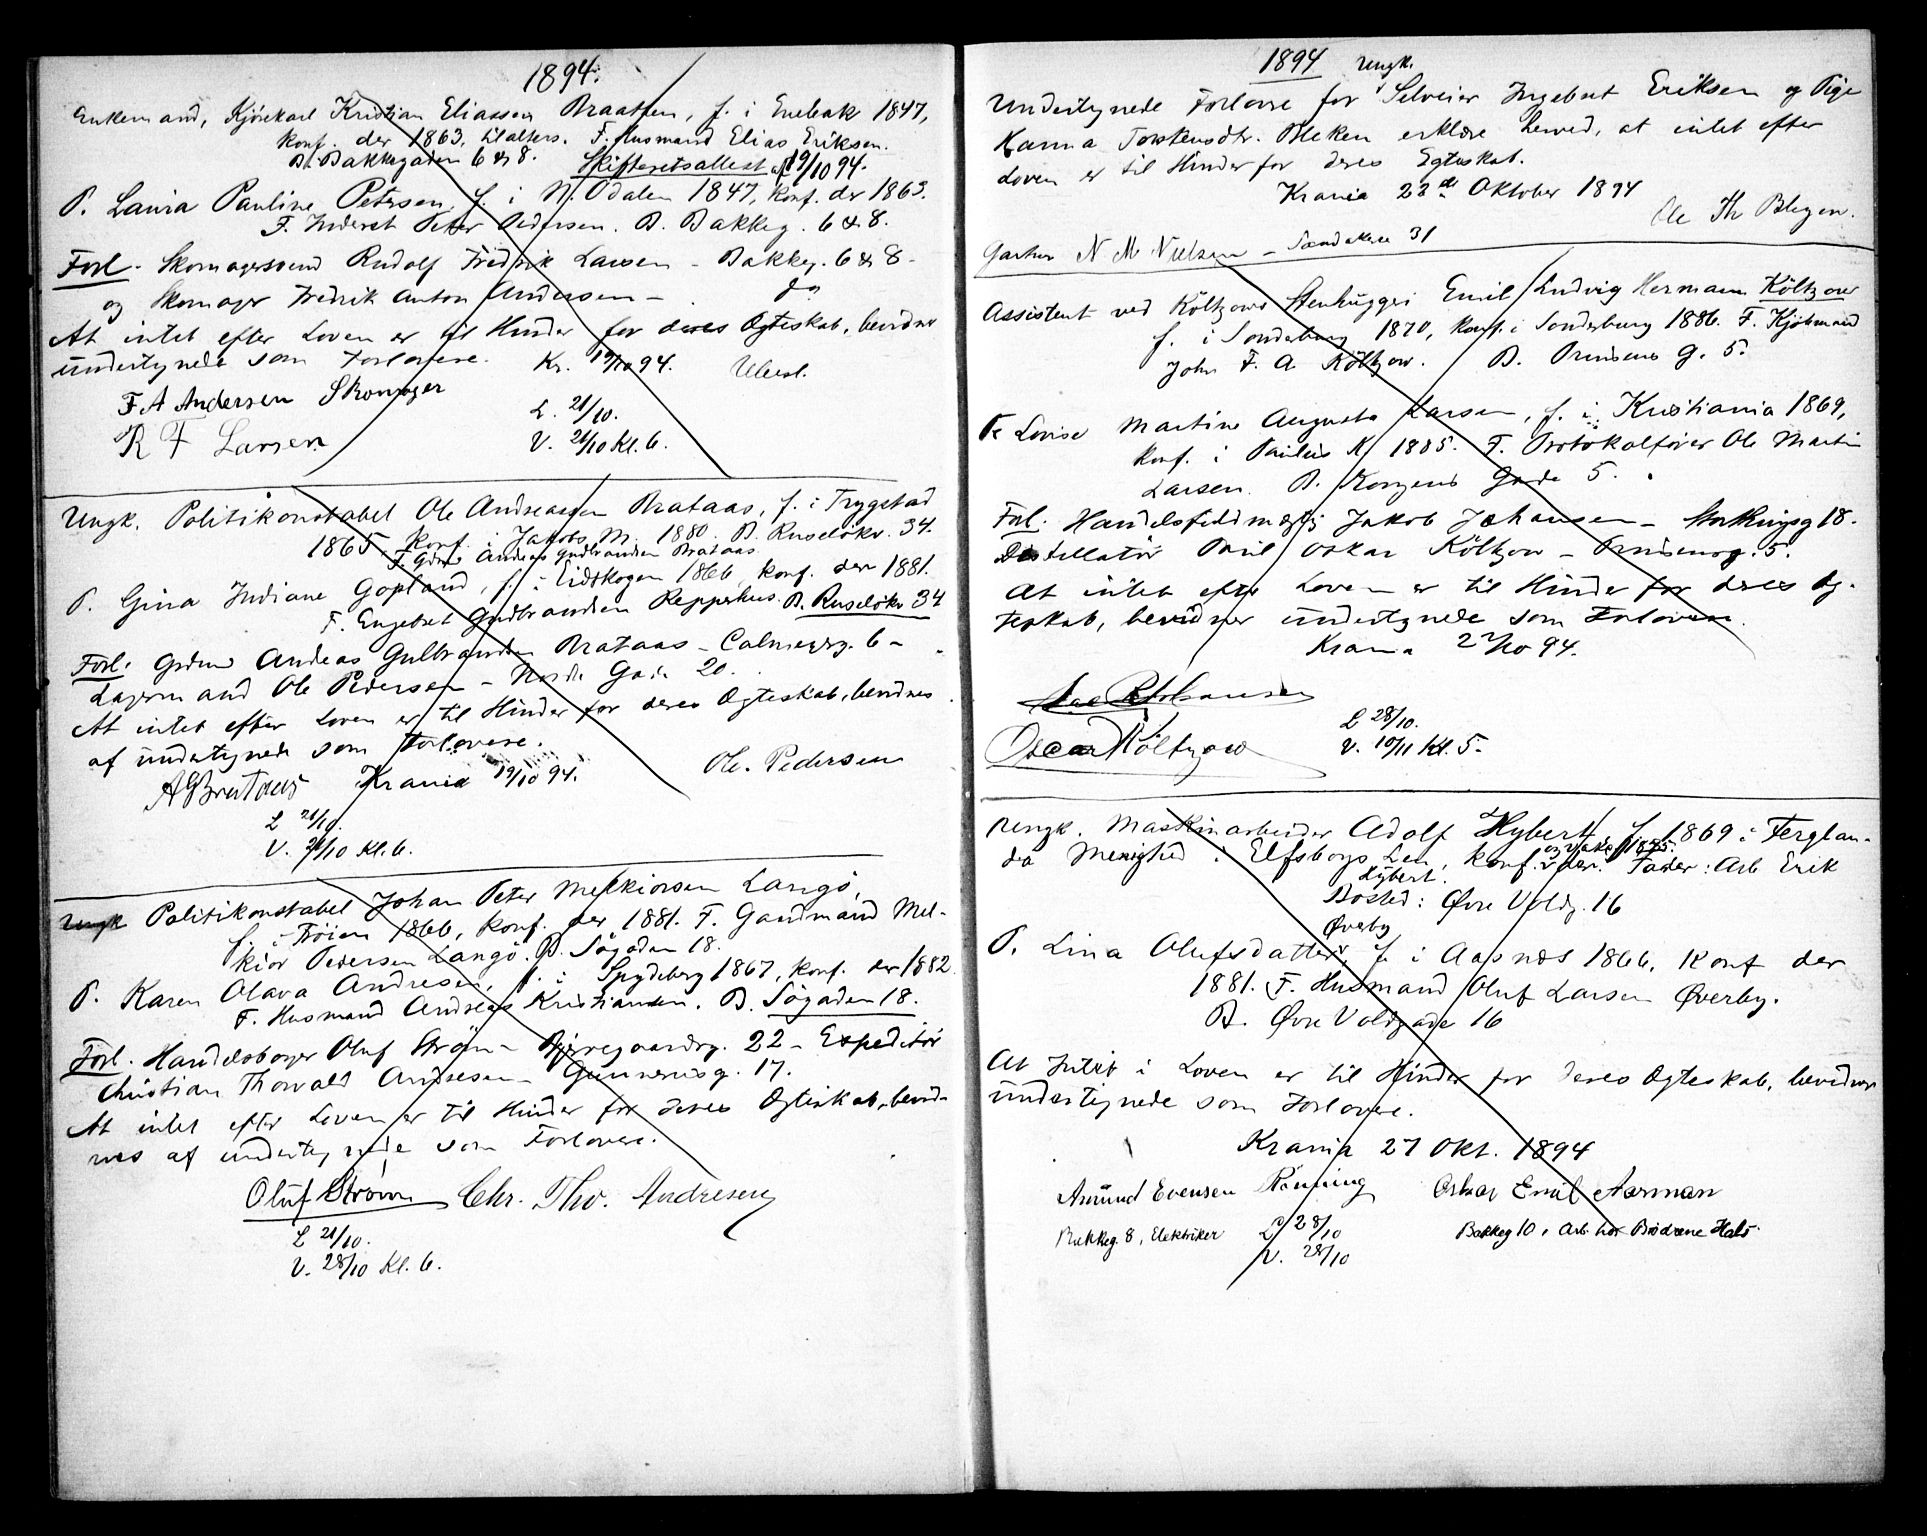 1894.
Enkemand, Kjørekarl Kristian Eliassen Braathen, f. i Enebak 1847,
konf. der 1863, til alters. F. Husmand Elias Eriksen.
B. Bakkegaden 6 & 8. Skifteretsattest af 19/10 94.
P. Laura Pauline Petersen, f. i N. Odalen 1847, konf. der 1863.
F. Inderst Peter Pedersen. B. Bakkeg. 6 & 8.
Forl. Skomagersvend Rudolf Fredrik Larsen - Bakkeg. 6 & 8 -
og Skomager Fredrik Anton Andersen - do
At intet efter Loven er til Hinder for deres Ægteskab, bevidner
undertegnede som Forlovere. Kr. 19/10 94.
F A Andersen Skomager
L. 21/10.
R F Larsen
V. 21/10 Kl. 6.
Ungk. Politikonstabel Ole Andreassen Brataas, f. i Trygstad
1865, konf. i Jakobs M. 1880. B. Ruseløkv. 34.
F. Gdmd Andreas Gudbrandsen Brataas.
P. Gina Indiane Gopland, f. i Eidskogen 1866, konf. der 1881.
F. Engebret Gudbrandsen Reppeshus. B. Ruseløkv 34
Forl. Grdmd Andreas Gulbrandsen Brataas - Calmeyerg. 6 -
Lagermand Ole Pedersen - Nordre Gade 20.
At intet efter Loven er til Hinder for deres Ægteskab, bevidnes
af undertegnede som Forlovere.
A G Brataas Krania 19/10 94. Ole Pedersen
L 21/10.
V. 21/10 Kl. 6.
Ungk Politikonstabel Johan Peter Melkiorsen Langø,
f. i Frøien 1866, konf. der 1881. F. Gaardmand Mel-
kior Petersen Langø. B. Søgaden 18.
P. Karen Olava Andresen, f. i Spydeberg 1867, konf. der 1882.
F. Husmand Andreas Kristiansen. B. Søgaden 18.
Forl. Handelsborger Oluf Strøm - Bjerregaardsg. 22 - Expeditør
Christian Thorvald Andresen - Gunnerusg. 17.
At intet efter Loven er til Hinder for deres Ægteskab, bevid-
nes af undertegnede som Forlovere.
Oluf Strøm Chr. Tho. Andresen
L 21/10.
V. 28/10 Kl. 6.
1894 Ungk.
Undertegnede Forlovere for Selveier Ingebret Eriksen og Pige
Karina Torstensdtr. Bleken erklære herved, at intet efter
Loven er til Hinder for deres Egteskab.
Krania 22de Oktober 1894
Ole Th Blegen.
Gartner N. M. Nielsen - Sandakerv 31
Assistent ved Költzows Stenhuggeri Emil Ludvig Hermann Költzow
f. i Sonderburg 1870, konf. i Sonderburg 1886. F. Kjøbmand
John F. A. Költzow. B. Prinsens G. 5.
P. Lovise Martine Augusta Larsen, f. i Kristiania 1869,
konf. i Paulus K 1885. F. Protokolfører Ole Martin
Larsen. B. Kongens Gade 5.
Forl. Handelsfuldmægtig Jakob Johansen - Storkingsg 18.
Destillatør Paul Oskar Költzow - Prinsensg. 5.
At intet efter Loven er til Hinder for deres Æg-
teskab, bevidner undertegnede som Forlovere.
Krania 27/10 94.
Oscar Költzow
L 28/10.
V. 10/11 Kl. 5.
Ungk. Maskinarbeider Adolf Hybert, f. 1869 i Ferglan-
da Menighed i Elfsborgs Len, konf. der. Fader: Arb Erik
Hybert.
Bosted: Øvre Voldg. 16
Øverby
P. Lina Olufsdatter, f. i Aasnæs 1866, Konf der
1881. F. Husmand Oluf Larsen Øverby.
B. Øvre Voldgade 16
At Intet i Loven er til Hinder for deres Ægteskab, bevidner
undertegnede som Forlovere.
Krania 27 Okt. 1894
Amund Evensen Rønning Oskar Emil Aarman
Bakkeg. 8, Elektriker L 28/10 Bakkeg 10, Arb. hos Brødrene Hals.
V. 28/10